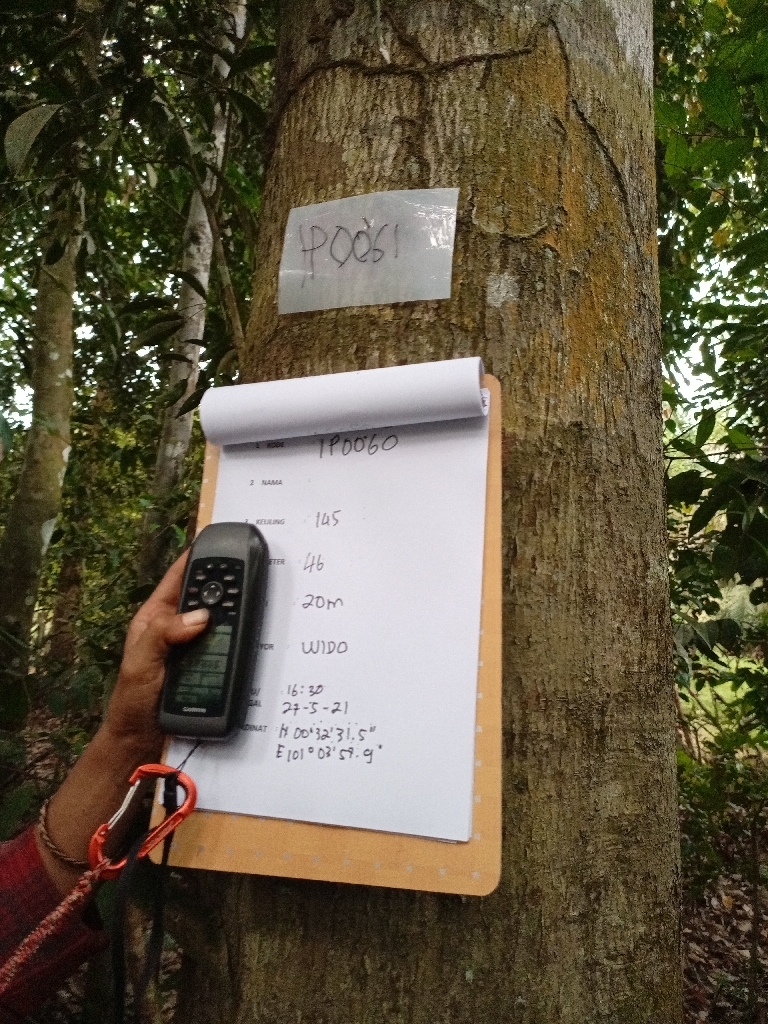 IP0061
1 KODE IP0060
2 NAMA
3 KELILING : 145
ETER : 46
: 20m
TOR : WIDO
16:30
GAL 27-5-21
DINAT N 00°32'31.5"
E 101°03'59.9"
GARMIN